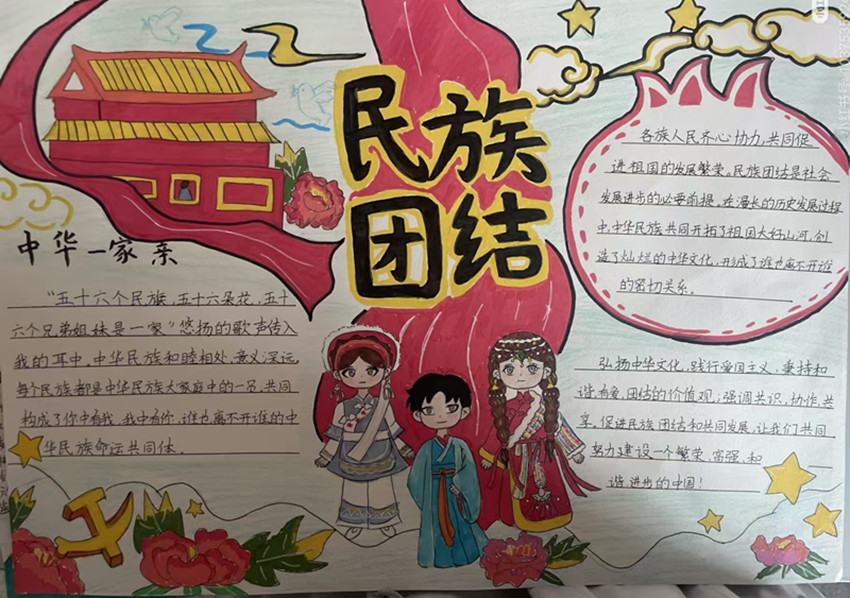 民族
团结
中华一家亲
"五十六个民族，五十六朵花，五十
六个兄弟姐妹是一家"悠扬的歌声传入
我的耳中。中华民族和睦相处，意义深远。
每个民族都是中华民族大家庭中的一员，共同
构成了你中有我，我中有你，谁也离不开谁的中
华民族命运共同体。
各族人民齐心协力，共同促
进祖国的发展繁荣。民族团结是社会
发展进步的必要前提。在漫长的历史发展过程
中，中华民族共同开拓了祖国大好山河，创
造了灿烂的中华文化，形成了谁也离不开谁
的密切关系。
弘扬中华文化，践行爱国主义，秉持和
谐、友爱、团结的价值观；强调共识、协作、共
享，促进民族团结和共同发展，让我们共同
努力建设一个繁荣、富强、和
谐、进步的中国！